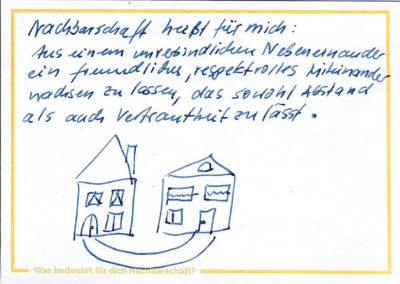 Nachbarschaft heißt für mich:
Aus einem unverbindlichen Nebeneinander
ein freundliches, respektvolles Miteinander
wachsen zu lassen, das sowohl Abstand
als auch Vertrautheit zu lässt.
Was bedeutet für dich Nachbarschaft?